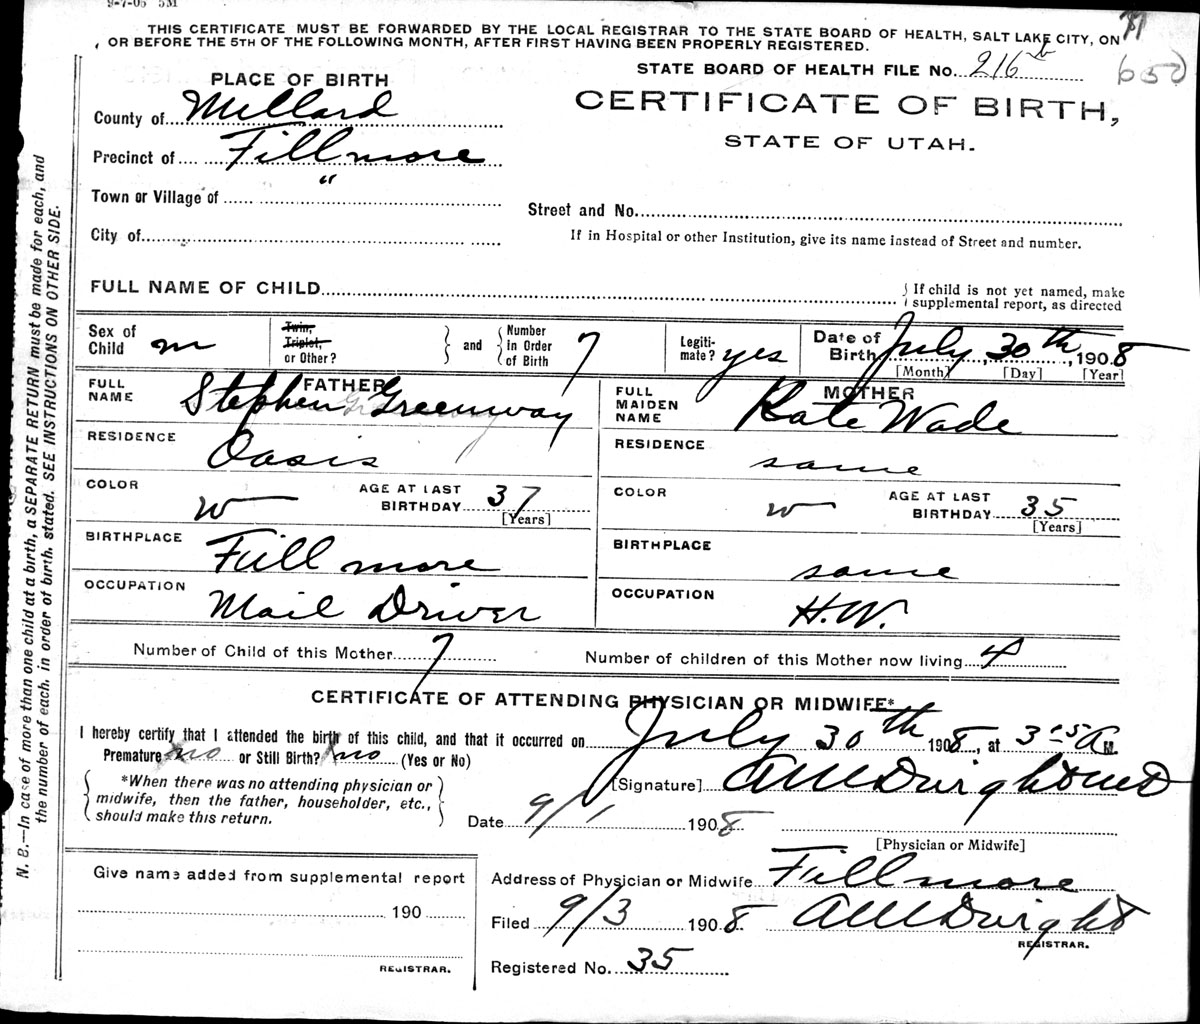 9-7-06 5M
THIS CERTIFICATE MUST BE FORWARDED BY THE LOCAL REGISTRAR TO THE STATE BOARD OF HEALTH, SALT LAKE CITY, ON
OR BEFORE THE 5TH OF THE FOLLOWING MONTH, AFTER FIRST HAVING BEEN PROPERLY REGISTERED.
STATE BOARD OF HEALTH FILE No. 216
PLACE OF BIRTH
CERTIFICATE OF BIRTH,
STATE OF UTAH.
County of Millard
Precinct of Fillmore
Town or Village of "
City of
Street and No.
If in Hospital or other Institution, give its name instead of Street and number.
FULL NAME OF CHILD
If child is not yet named, make
supplemental report, as directed
Sex of Child m
Twin, Triplet, or Other?
and
Number in Order of Birth 7
Legitimate? yes
Date of Birth July 30th, 1908
[Month] [Day] [Year]
FATHER
FULL NAME Stephen Greenway
RESIDENCE Oasis
COLOR W
AGE AT LAST BIRTHDAY 37
[Years]
BIRTHPLACE Fillmore
OCCUPATION Mail Driver
MOTHER
FULL MAIDEN NAME Kate Wade
RESIDENCE same
COLOR W
AGE AT LAST BIRTHDAY 35
[Years]
BIRTHPLACE same
OCCUPATION H.W.
Number of Child of this Mother 7
Number of children of this Mother now living 4
CERTIFICATE OF ATTENDING PHYSICIAN OR MIDWIFE*
I hereby certify that I attended the birth of this child, and that it occurred on July 30th 1908, at 3 15 A M.
Premature no or Still Birth? no (Yes or No)
*When there was no attending physician or
midwife, then the father, householder, etc.,
should make this return.
[Signature] Dwight MD
Date 9/1 1908
[Physician or Midwife]
Give name added from supplemental report
190
REGISTRAR.
Address of Physician or Midwife Fillmore
Filed 9/3 1908 Dwight
REGISTRAR.
Registered No. 35
N. B.—In case of more than one child at a birth, a SEPARATE RETURN must be made for each, and
the number of each, in order of birth, stated. SEE INSTRUCTIONS ON OTHER SIDE.